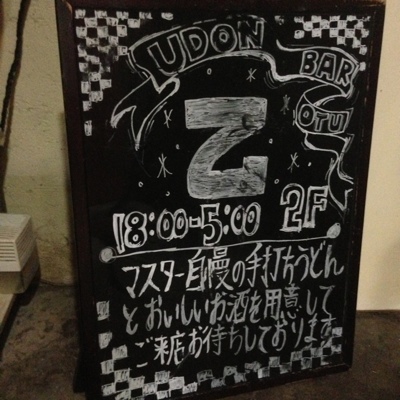 UDON BAR OTU
乙
18:00-5:00 2F
マスター自慢の手打ちうどん
とおいしいお酒を用意して
ご来店お待ちしております